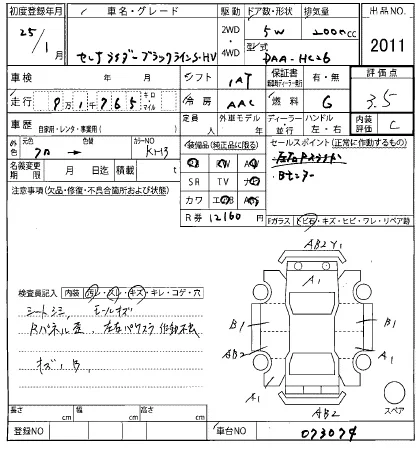 初度登録年月 車名・グレード 駆動 ドア数・形状 排気量 出品NO.
25/1 セレナ ライダー ブラックライン S-HV 2WD・4WD 5W 2000cc 2011
型式 DAA-HC26
車検 年 月 シフト 1AT 保証書 有・無 評価点
走行 8万1千765 キロ・マイル 冷房 AAC 燃料 G 3.5
車歴 自家用・レンタ・事業用( ) 定員 人 外車モデル 年 ディーラー 並行 ハンドル 左・右 内装評価 C
色 元色 色替 カラーNO KH3
装備品(純正品に限る) セールスポイント(正常に作動するもの)
名義変更期限 月 日迄 積載 t
SR TV ナビ
Bセンター
注意事項(欠品・修復・不具合箇所および状態)
カワ エアB
R券 12160 円
Fガラス(ト・ビ石・キズ・ヒビ・ワレ・リペア跡)
AB2 Y1
A1
検査員記入 内装(汚レ・スレ・キズ・キレ・コゲ・穴)
シートシミ、モールキズ
B1 B1
Rパネル歪、左右パワスラ作動不良
AB2
キズ、B、
A1 A1
AB2
スペア
長さ cm 幅 cm 高さ cm
登録NO 車台NO 073074